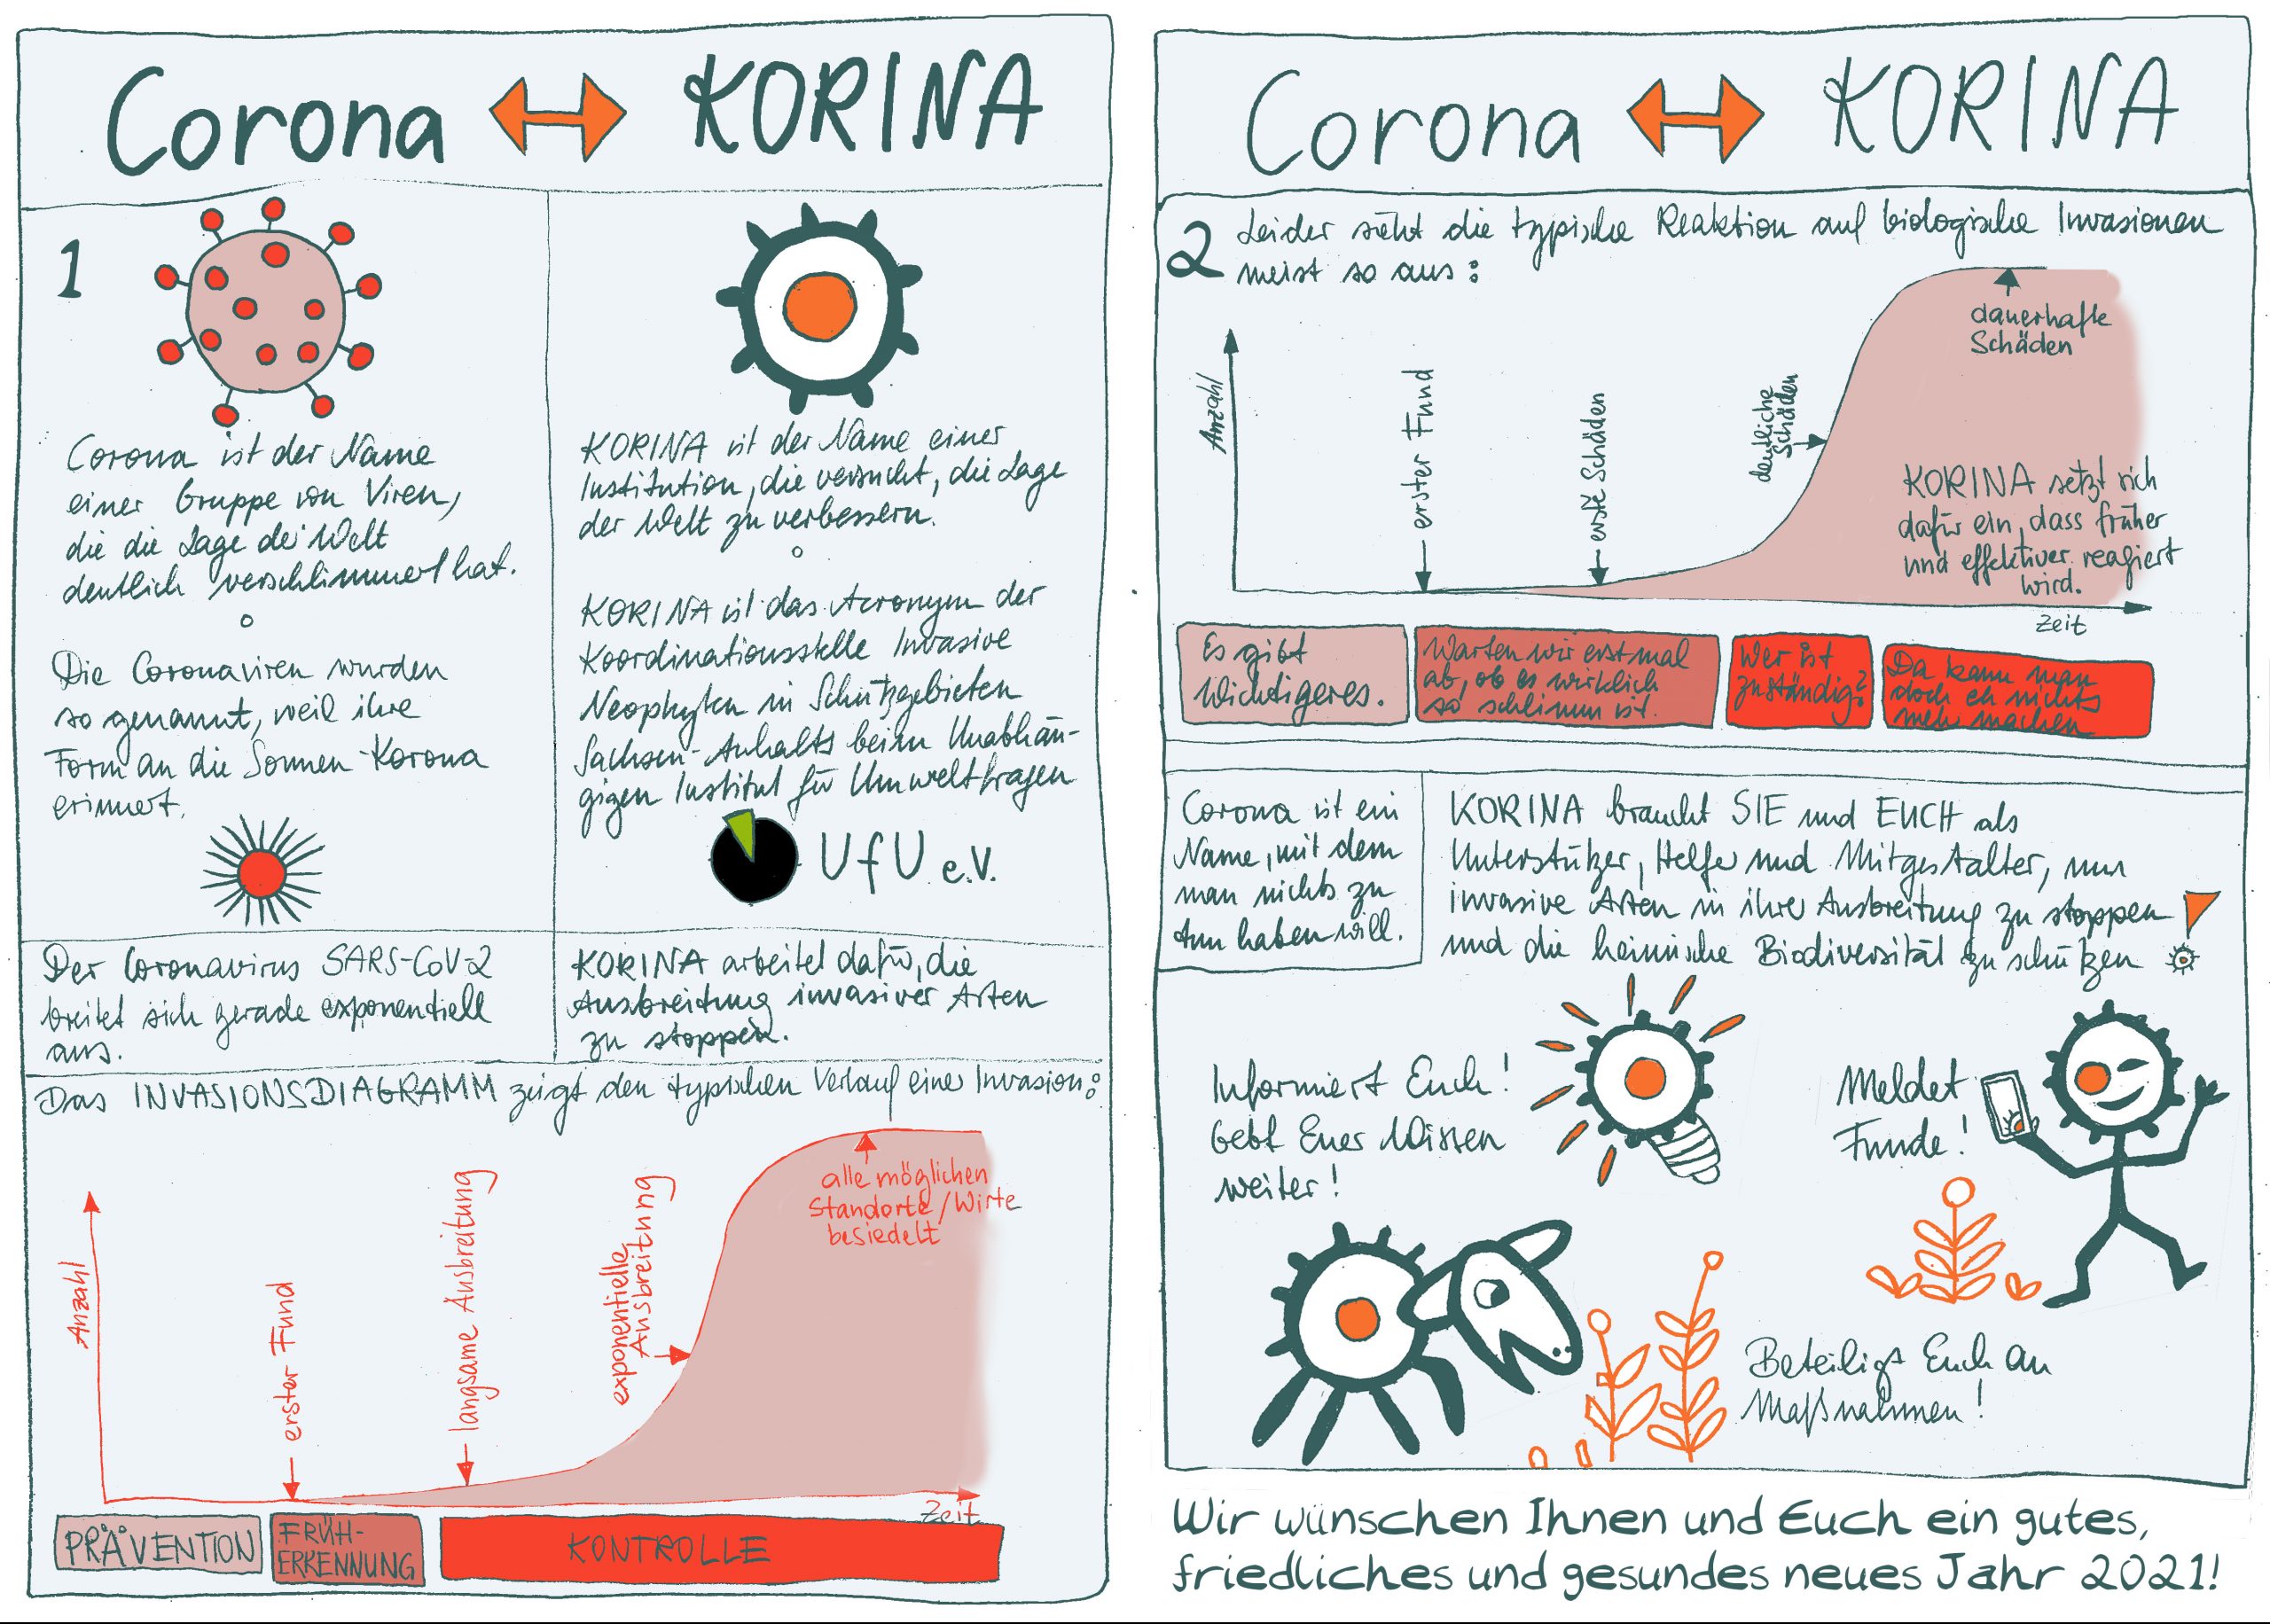 Corona ↔ KORINA
1
Corona ist der Name
einer Gruppe von Viren,
die die Lage der Welt
deutlich verschlimmert hat.
Die Coronaviren wurden
so genannt, weil ihre
Form an die Sonnen-Korona
erinnert.
KORINA ist der Name einer
Institution, die versucht, die Lage
der Welt zu verbessern.
KORINA ist das Acronym der
Koordinationsstelle Invasive
Neophyten in Schutzgebieten
Sachsen-Anhalts beim Unabhän-
gigen Institut für Umweltfragen
UfU e.V.
Der Coronavirus SARS-CoV-2
breitet sich gerade exponentiell
aus.
KORINA arbeitet dafür, die
Ausbreitung invasiver Arten
zu stoppen.
Das INVASIONSDIAGRAMM zeigt den typischen Verlauf einer Invasion:
Anzahl
erster Fund
langsame Ausbreitung
exponentielle
Ausbreitung
alle möglichen
Standorte/Wirte
besiedelt
Zeit
PRÄVENTION
FRÜH-
ERKENNUNG
KONTROLLE
Corona ↔ KORINA
2
Leider sieht die typische Reaktion auf biologische Invasionen
meist so aus:
Anzahl
erster Fund
erste Schäden
deutliche
Schäden
dauerhafte
Schäden
KORINA setzt sich
dafür ein, dass früher
und effektiver reagiert
wird.
Zeit
Es gibt
Wichtigeres.
Warten wir erst mal
ab, ob es wirklich
so schlimm ist.
Wer ist
zuständig?
Da kann man
doch eh nichts
mehr machen
Corona ist ein
Name, mit dem
man nichts zu
tun haben will.
KORINA braucht SIE und EUCH als
Unterstützer, Helfer und Mitgestalter, um
invasive Arten in ihrer Ausbreitung zu stoppen
und die heimische Biodiversität zu schützen!
Informiert Euch!
Gebt Euer Wissen
weiter!
Meldet
Funde!
Beteiligt Euch an
Maßnahmen!
Wir wünschen Ihnen und Euch ein gutes,
friedliches und gesundes neues Jahr 2021!